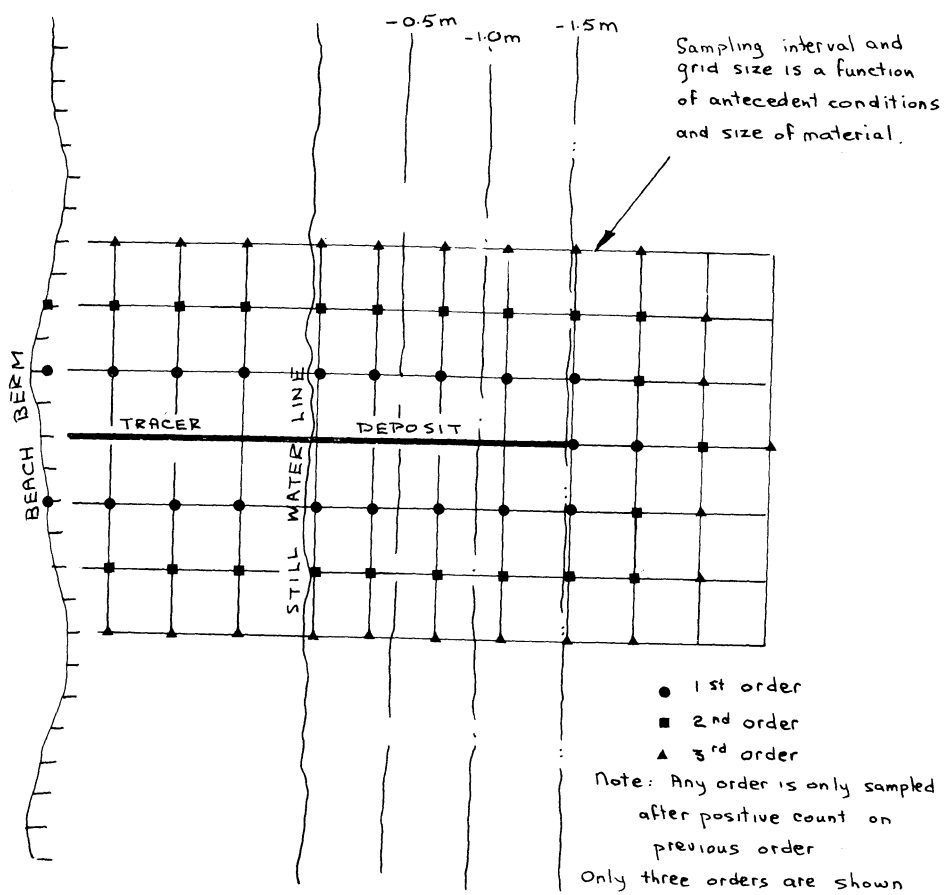 -0.5m
-1.0m
-1.5m
Sampling interval and
grid size is a function
of antecedent conditions
and size of material.
BEACH BERM
TRACER
DEPOSIT
STILL WATER LINE
1st order
2nd order
3rd order
Note: Any order is only sampled
after positive count on
previous order
Only three orders are shown